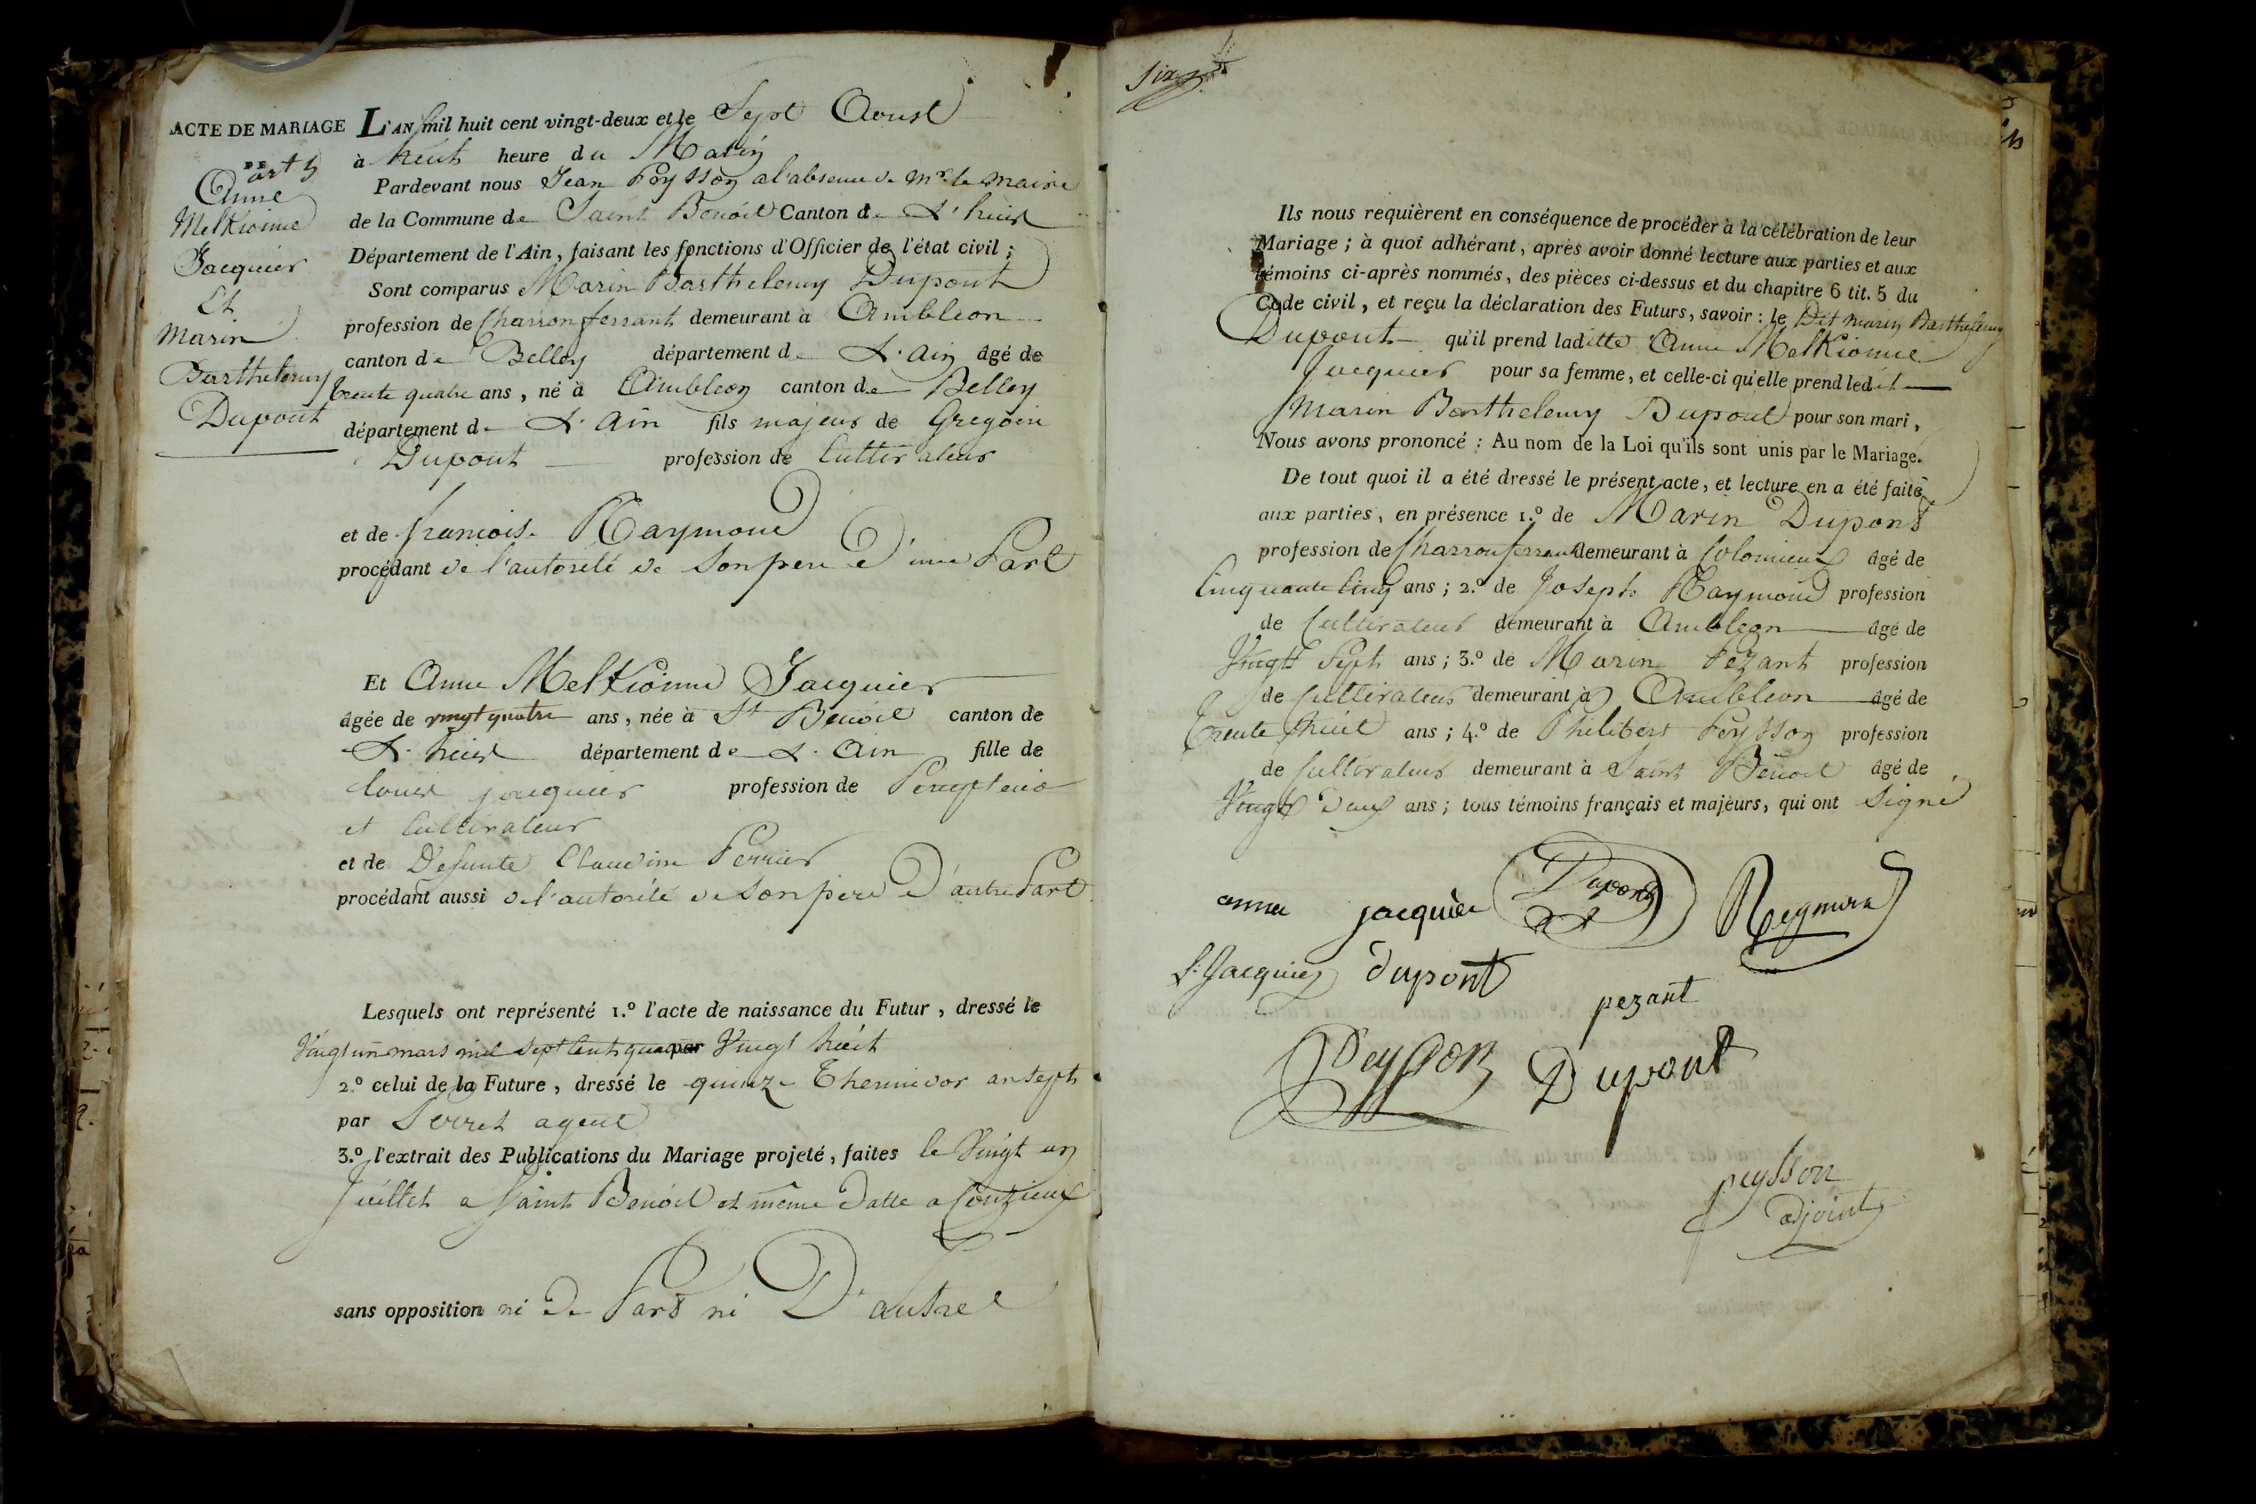 ACTE DE MARIAGE
DE
art 5
Anne
Melkionne
Jacquier
Et
Marin
Barthelemy
Dupont
L'AN mil huit cent vingt-deux et le Sept Aoust
à heuit heure du Matin
Pardevant nous Jean Peysson a l'absence de Mr. le Maire
de la Commune de Saint Benoit Canton de L'huis
Département de l'Ain, faisant les fonctions d'Officier de l'état civil ;
Sont comparus Marin Barthelemy Dupont
profession de Charron ferrant demeurant à Ambleon
canton de Belley département de L'Ain âgé de
trente quatre ans, né à Ambleon canton de Belley
département de L'Ain fils majeur de Gregoire
Dupont profession de Cultivateur
et de francoise Raymond
procédant de l'autorité de Son pere D'une Part
Et Anne Melkionne Jacquier
âgée de vingt quatre ans, née à St Benoit canton de
L'huis département de L'Ain fille de
Louis jacquier profession de
et Cultivateur
et de Defunte Claudine Perrier
procédant aussi de l'autorité de Son pere D'autre Part
Lesquels ont représenté 1.º l'acte de naissance du Futur, dressé le
Vingt un mars mil sept cent quatre Vingt huit
2.º celui de la Future, dressé le quinze Thermidor an sept
par Serret agent
3.º l'extrait des Publications du Mariage projeté, faites le Vingt un
Juillet a Saint Benoit et même Datte a Conzieux
sans opposition ni De Part ni D'autre
Six
Ils nous requièrent en conséquence de procéder à la célébration de leur
Mariage ; à quoi adhérant, après avoir donné lecture aux parties et aux
témoins ci-après nommés, des pièces ci-dessus et du chapitre 6 tit. 5 du
Code civil, et reçu la déclaration des Futurs, savoir : le Dit Marin Barthelemy
Dupont qu'il prend laditte Anne Melkionne
Jacquier pour sa femme, et celle-ci qu'elle prend ledit
Marin Barthelemy Dupont pour son mari,
Nous avons prononcé : Au nom de la Loi qu'ils sont unis par le Mariage.
De tout quoi il a été dressé le présent acte, et lecture en a été faite
aux parties, en présence 1.º de Marin Dupont
profession de Charron ferrant demeurant à Colomieux âgé de
Cinquante Cinq ans ; 2.º de Joseph Raymond profession
de Cultivateur demeurant à Ambleon âgé de
Vingt Sept ans ; 3.º de Marin Pezant profession
de Cultivateur demeurant à Ambleon âgé de
trente huit ans ; 4.º de Philibert Peysson profession
de Cultivateur demeurant à Saint Benoit âgé de
Vingt Deux ans ; tous témoins français et majeurs, qui ont Signé
anna jacquier Dupont Reymond
L. Jacquier dupont
pezant
Peysson Dupont
peysson
adjoint